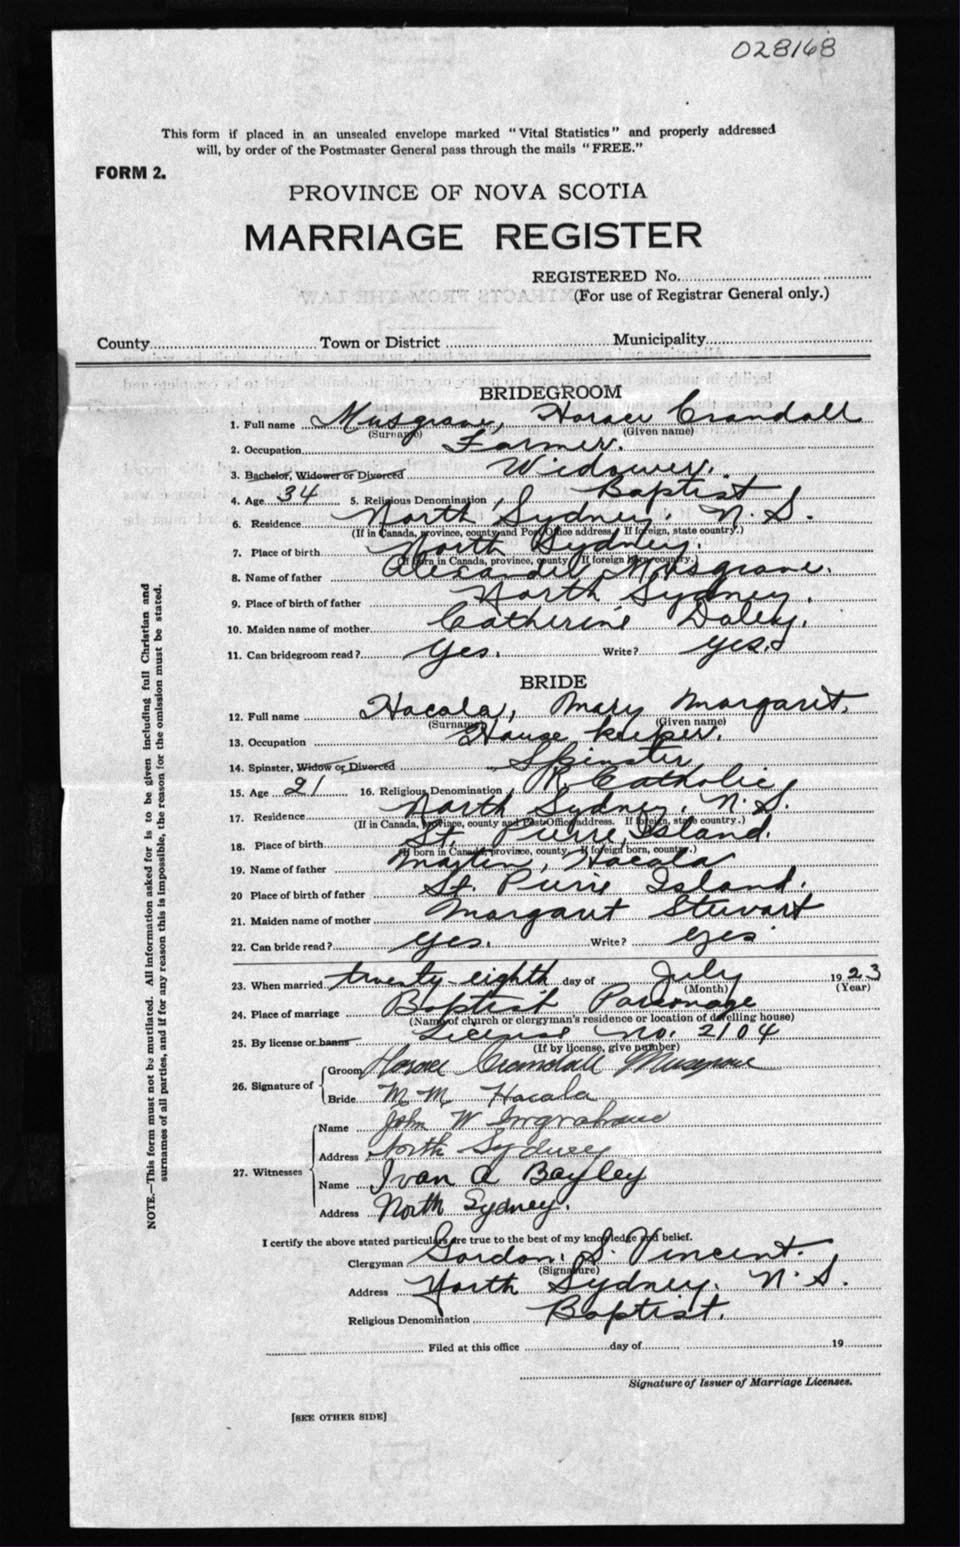 028168
This form if placed in an unsealed envelope marked "Vital Statistics" and properly addressed
will, by order of the Postmaster General pass through the mails "FREE."
FORM 2.
PROVINCE OF NOVA SCOTIA
MARRIAGE REGISTER
REGISTERED No.
(For use of Registrar General only.)
County Town or District Municipality
BRIDEGROOM
1. Full name Musgrave, Horace Crandall
(Surname) (Given name)
2. Occupation Farmer.
3. Bachelor, Widower or Divorced Widower.
4. Age 34 5. Religious Denomination Baptist
6. Residence North Sydney, N. S.
(If in Canada, province, county and Post Office address. If foreign, state country.)
7. Place of birth North Sydney.
(If born in Canada, province, county. If foreign born, country.)
8. Name of father Alexander Musgrave.
9. Place of birth of father North Sydney.
10. Maiden name of mother Catherine Daley.
11. Can bridegroom read? Yes. Write? yes.
BRIDE
12. Full name Hacala, Mary Margaret.
(Surname) (Given name)
13. Occupation House keeper.
14. Spinster, Widow or Divorced Spinster
15. Age 21 16. Religious Denomination R. Catholic
17. Residence North Sydney, N. S.
(If in Canada, province, county and Post Office address. If foreign, state country.)
18. Place of birth St. Pierre Island.
(If born in Canada, province, county. If foreign born, county.)
19. Name of father Martin Hacala
20 Place of birth of father St. Pierre Island.
21. Maiden name of mother Margaret Stewart
22. Can bride read? Yes. Write? Yes
23. When married twenty-eighth day of July 1923
(Month) (Year)
24. Place of marriage Baptist Parsonage
(Name of church or clergyman's residence or location of dwelling house)
25. By license or banns License No. 2104
(If by license, give number)
26. Signature of Groom Horace Crandall Musgrave
Bride M. M. Hacala
27. Witnesses Name John W Ingraham
Address North Sydney
Name Ivan A Bayley
Address North Sydney.
I certify the above stated particulars are true to the best of my knowledge and belief.
Clergyman Gordon. S. Vincent.
(Signature)
Address North Sydney. N. S.
Religious Denomination Baptist.
Filed at this office day of 19
Signature of Issuer of Marriage Licenses.
[SEE OTHER SIDE]
NOTE.—This form must not be mutilated. All information asked for is to be given including full Christian and
surnames of all parties, and if for any reason this is impossible, the reason for the omission must be stated.